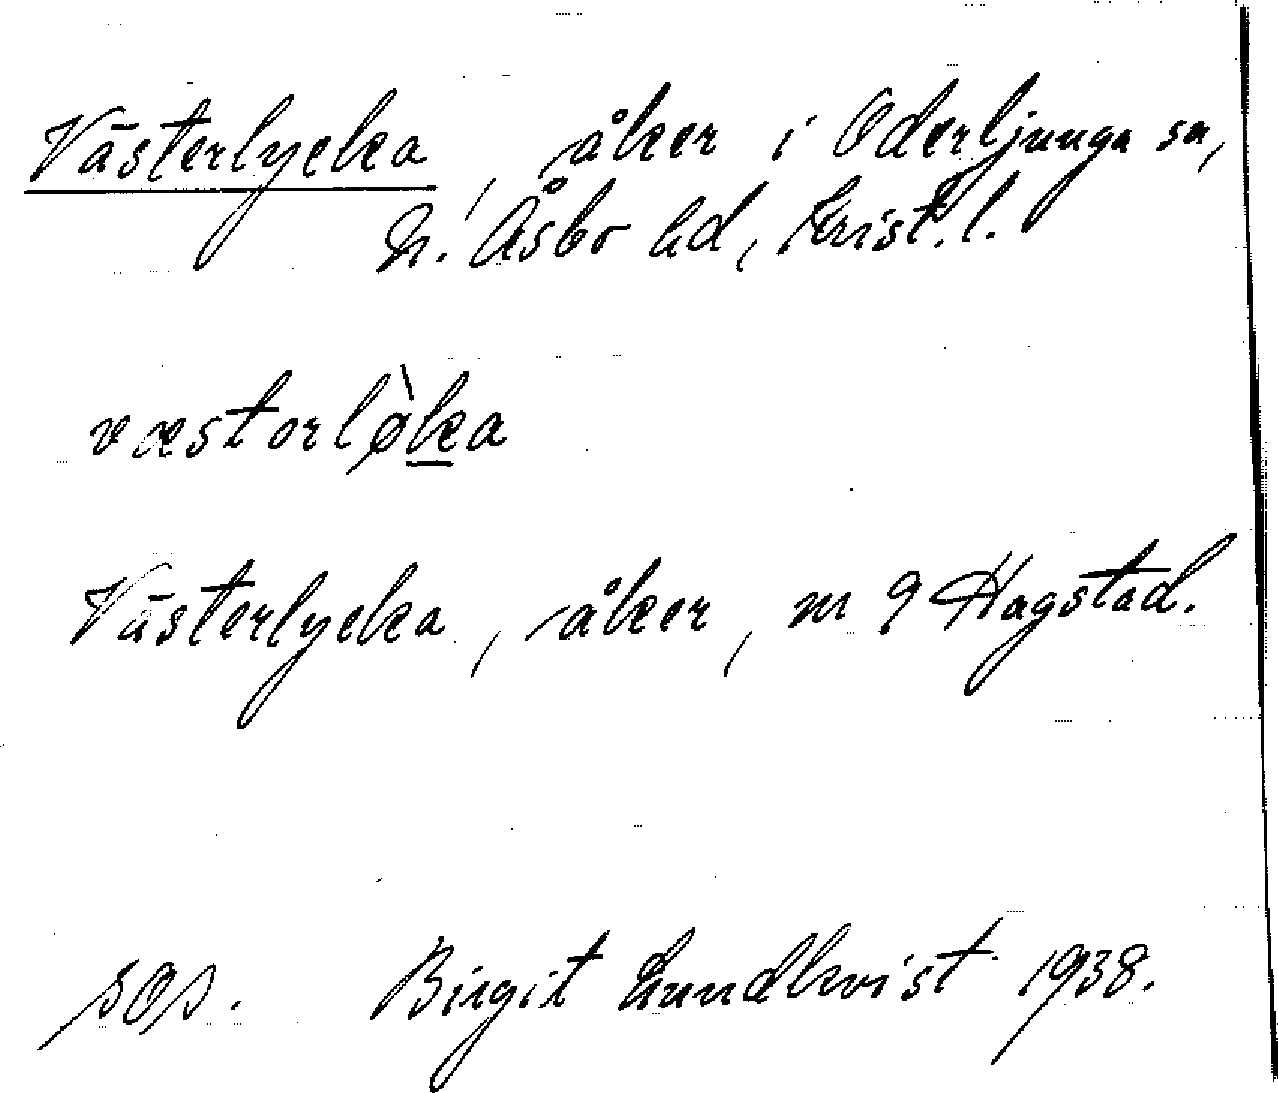 Västerlycka, åker i Oderljunga sn,
N. Åsbo hd, Krist. l.
væstərlø̀ka
Västerlycka, åker, nr 9 Hagstad.
sos. Birgit Lundkvist 1938.